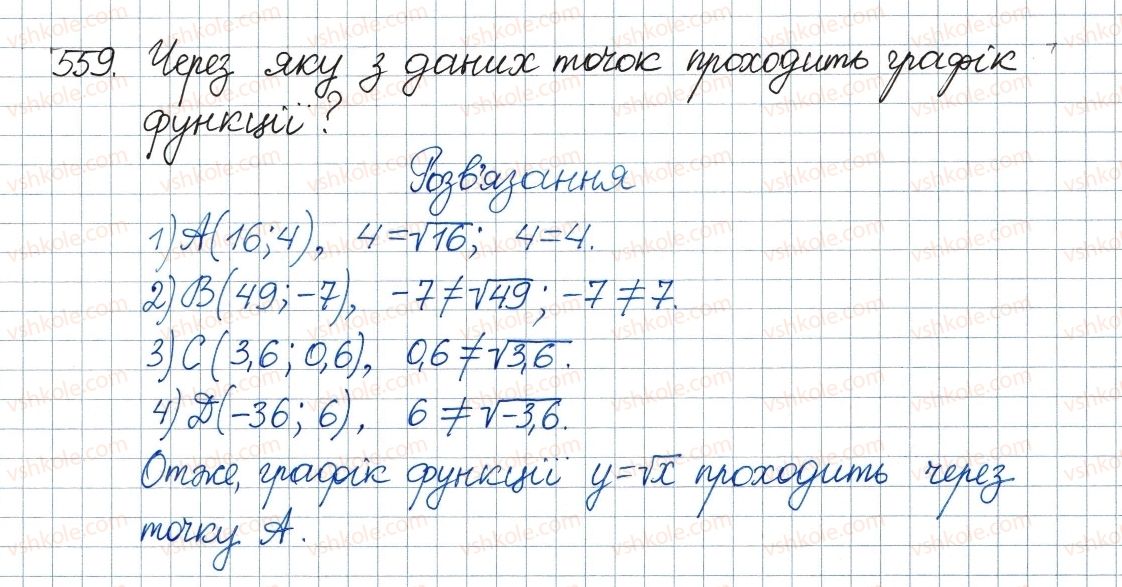 559. Через яку з даних точок проходить графік
функції?
Розв'язання
1) A(16; 4), 4 = √16; 4 = 4.
2) B(49; -7), -7 ≠ √49; -7 ≠ 7.
3) C(3,6; 0,6), 0,6 ≠ √3,6.
4) D(-36; 6), 6 ≠ √-3,6.
Отже, графік функції y = √x проходить через
точку A.